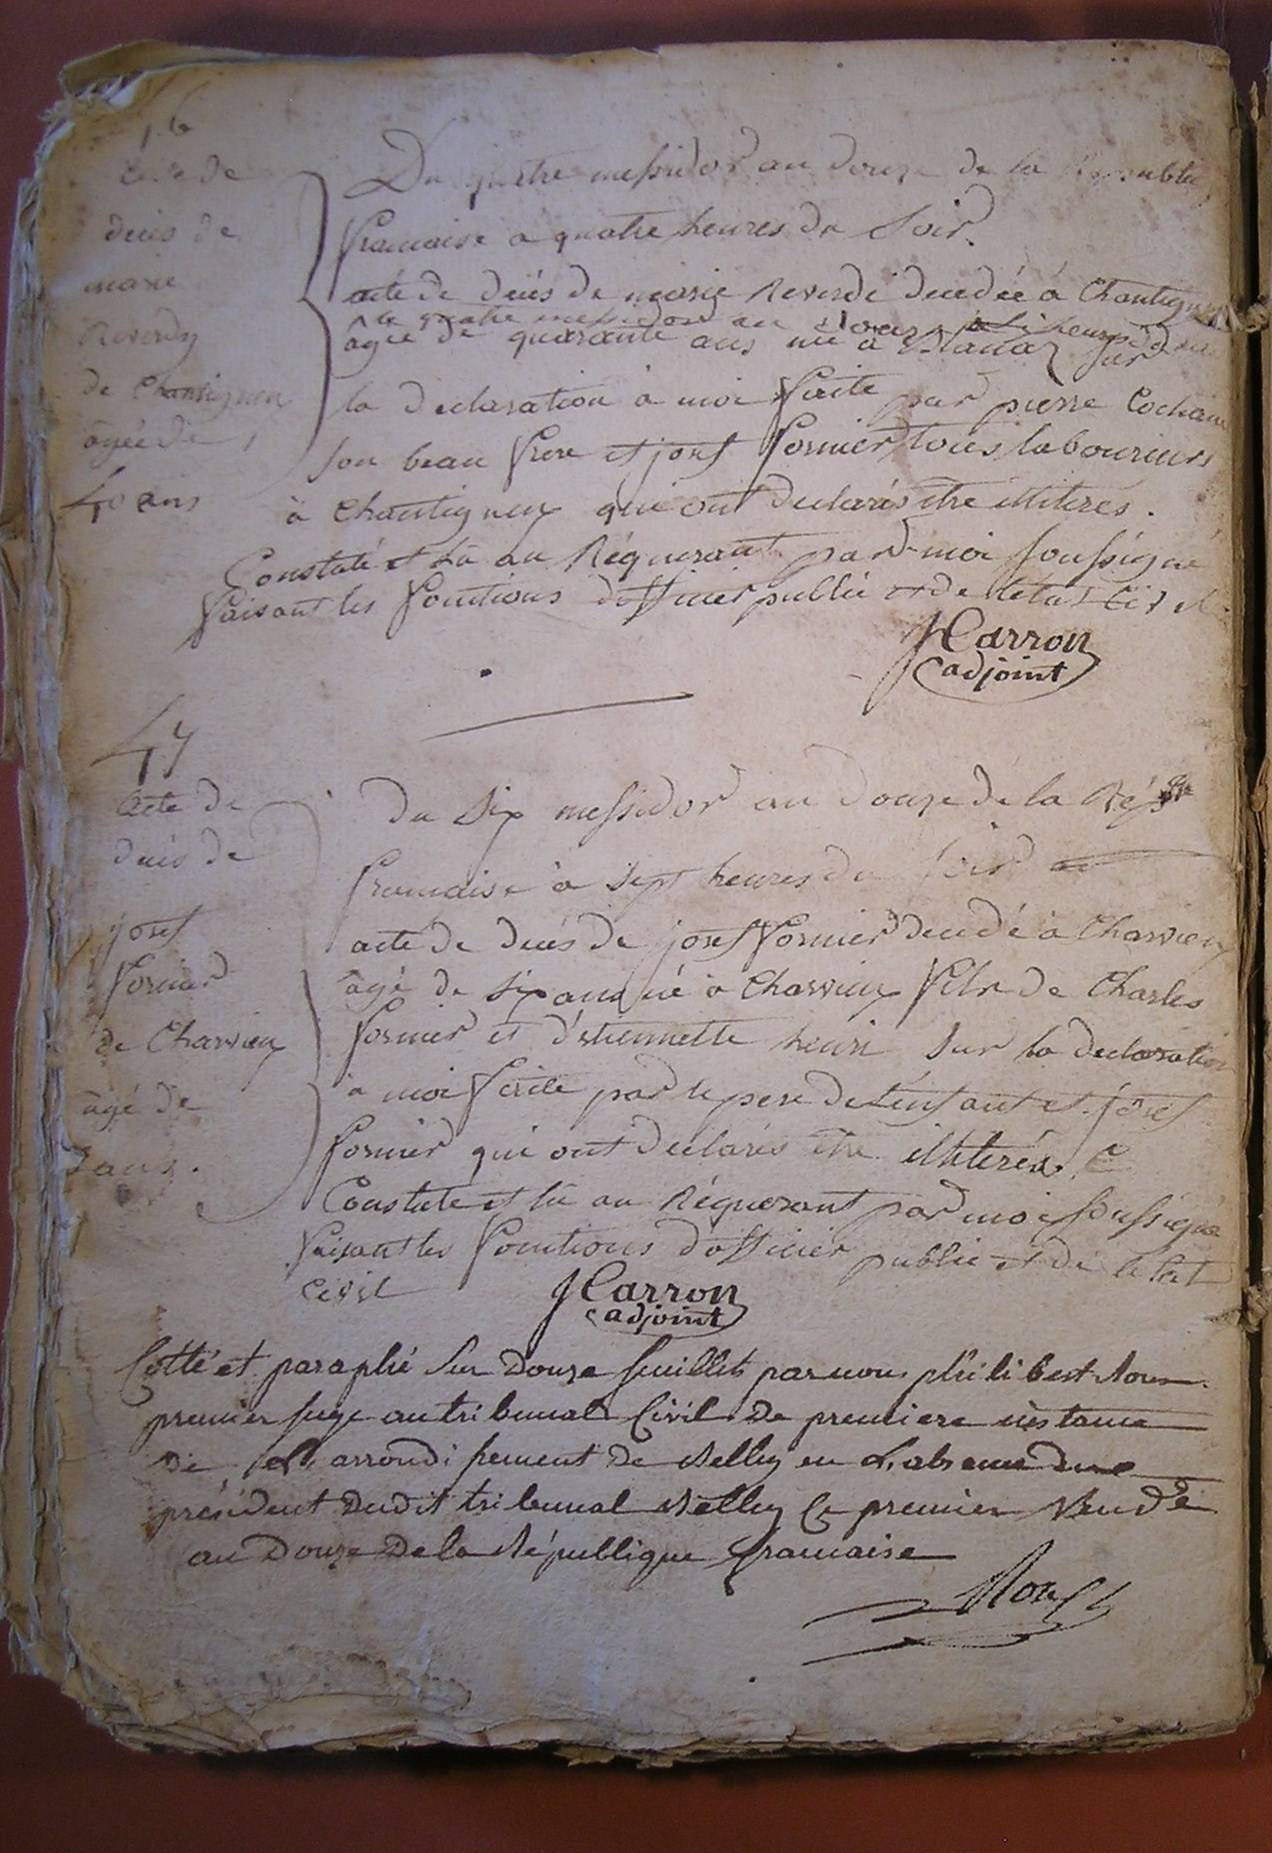 46
acte de
décés de
marie
Reverdy
de Chantigneu
âgée de
40 ans
Du quatre messidor an douze de la Republiq
francaise a quatre heures du soir.
acte de décés de marie Reverdi decedée á Chantigneu
le quatre messidor an douze a heures du
âgée de quarante ans née a sur
la declaration a moi faite par pierre Cochau
son beau frere et josef fornier tous laboureurs
à Chantigneux qui ont declarés etre illiteres.
Constaté et lu au Réquerant par moi soussigné
faisant les fonctions d'officier public et de letat civil
J Carron
adjoint
47
acte de
décés de
josef
fornier
de Charvieux
âgé de
ans.
Du six messidor an douze de la Rép
francaise à sept heures du soir
acte de decés de josef fornier decedé à Charvieux
âgé de six ans né à Charvieux fils de Charles
fornier et d'etiennette henri sur la declaration
a moi faite par le pere de l'enfant et josef
fornier qui ont declarés etre illiterés.
Constaté et lu au Réquerant par moi soussigné
faisant les fonctions d'officier public et de letat
civil
J Carron
adjoint
Cotté et paraphé sur Douze feuillets par nous philibert
premier juge au tribunal Civil de premiere instance
de arrondissement de Belley en L'absence du
président dudit tribunal Belley le premier Vend.re
an Douze de la République francaise